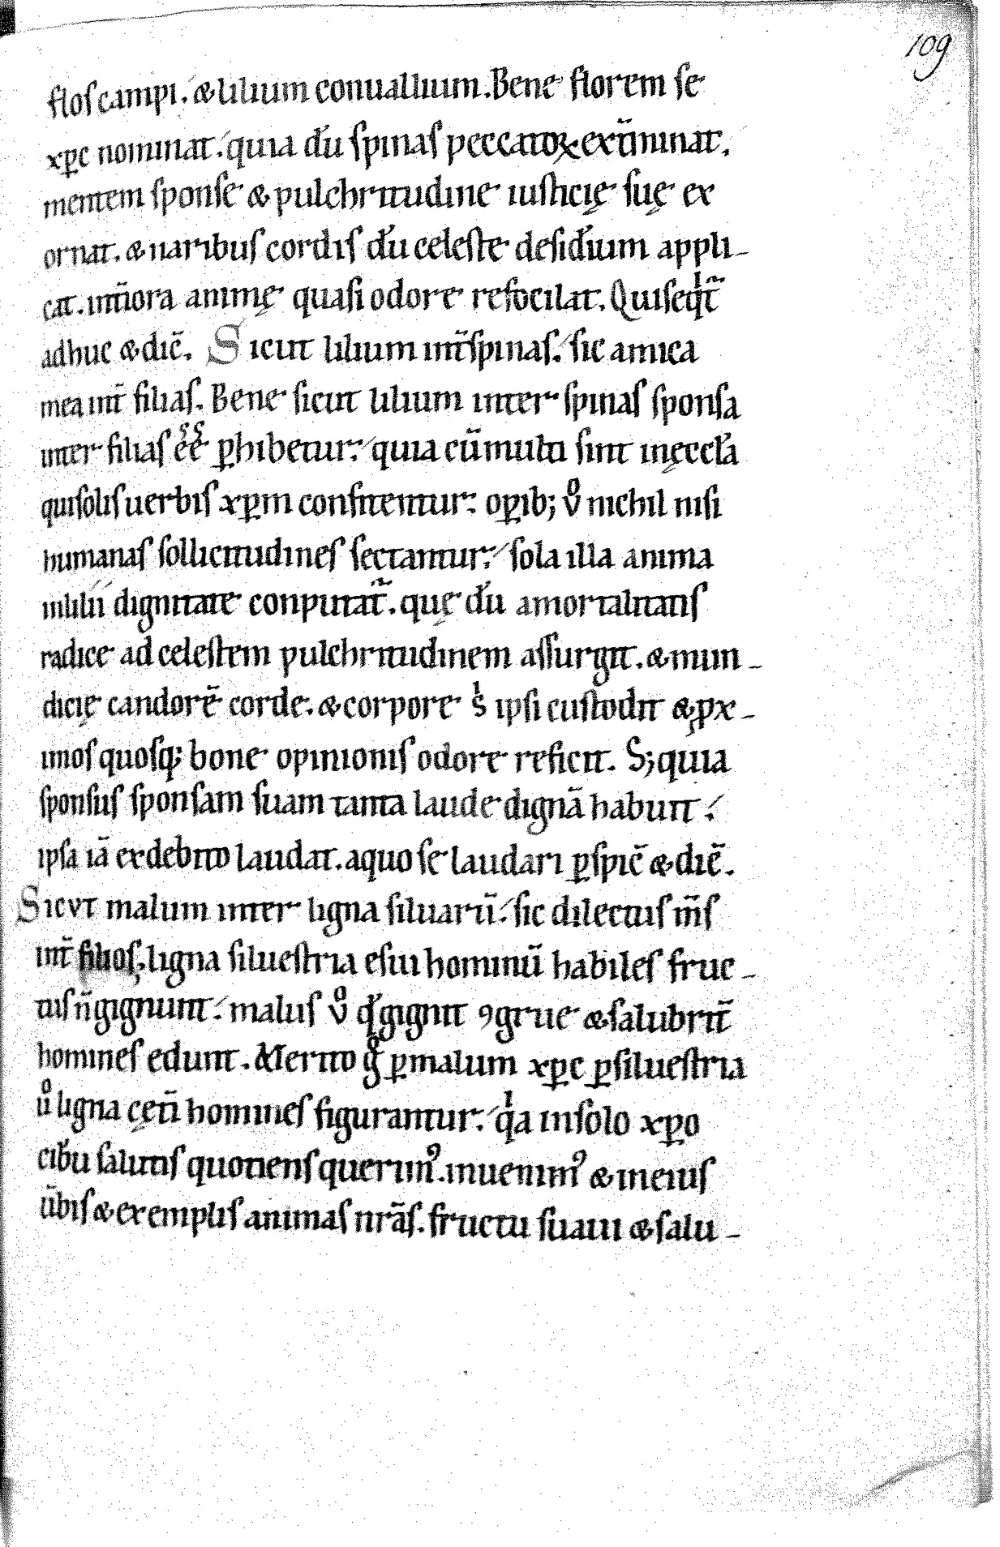 109
flos campi. & lilium conuallium. Bene florem se
xp̄c nominat. quia dū spinas peccatoꝝ ext̄minat.
mentem sponse & pulchritudine iusticię suę ex
ornat. & naribus cordis dū celeste desid̄ium appli-
cat. int̄iora animę quasi odore refocilat. Qui seqͥt᷑
adhuc & dic̄. Sicut lilium int̄ spinas. sic amica
mea int̄ filias. Bene sicut lilium inter spinas sponsa
inter filias ēē ꝑhibetur. quia cū multi sint in ęccl̄a
qui solis uerbis xp̄m confitentur: oꝑib; ů nichil nisi
humanas sollicitudines sectantur. sola illa anima
in lilii dignitate conputat᷑. quę dū a mortalitatis
radice ad celestem pulchritudinem assurgit. & mun-
dicię candorē corde. & corpore sͥ ipsi custodit & ꝓx-
imos quosq; bone opinionis odore reficit. S; quia
sponsus sponsam suam tanta laude dignā habuit.
ipsa iā ex debito laudat. a quo se laudari ꝑspic̄ & dic̄.
Sicut malum inter ligna siluarū. sic dilectus m̄s
int̄ filios. ligna siluestria esui hominū habiles fruc-
tus n̄ gignunt. malus ů qď gignit ꝯgrue & salubrit̄
homines edunt. Merito gͦ ꝑ malum xp̄c ꝑ siluestria
ů ligna cęt̄i homines figurantur. qͥa in solo xp̄o
cibū salutis quotiens querimꝰ. inuenimꝰ & in eius
ūbis & exemplis animas nr̄as. fructu suaui & salu-